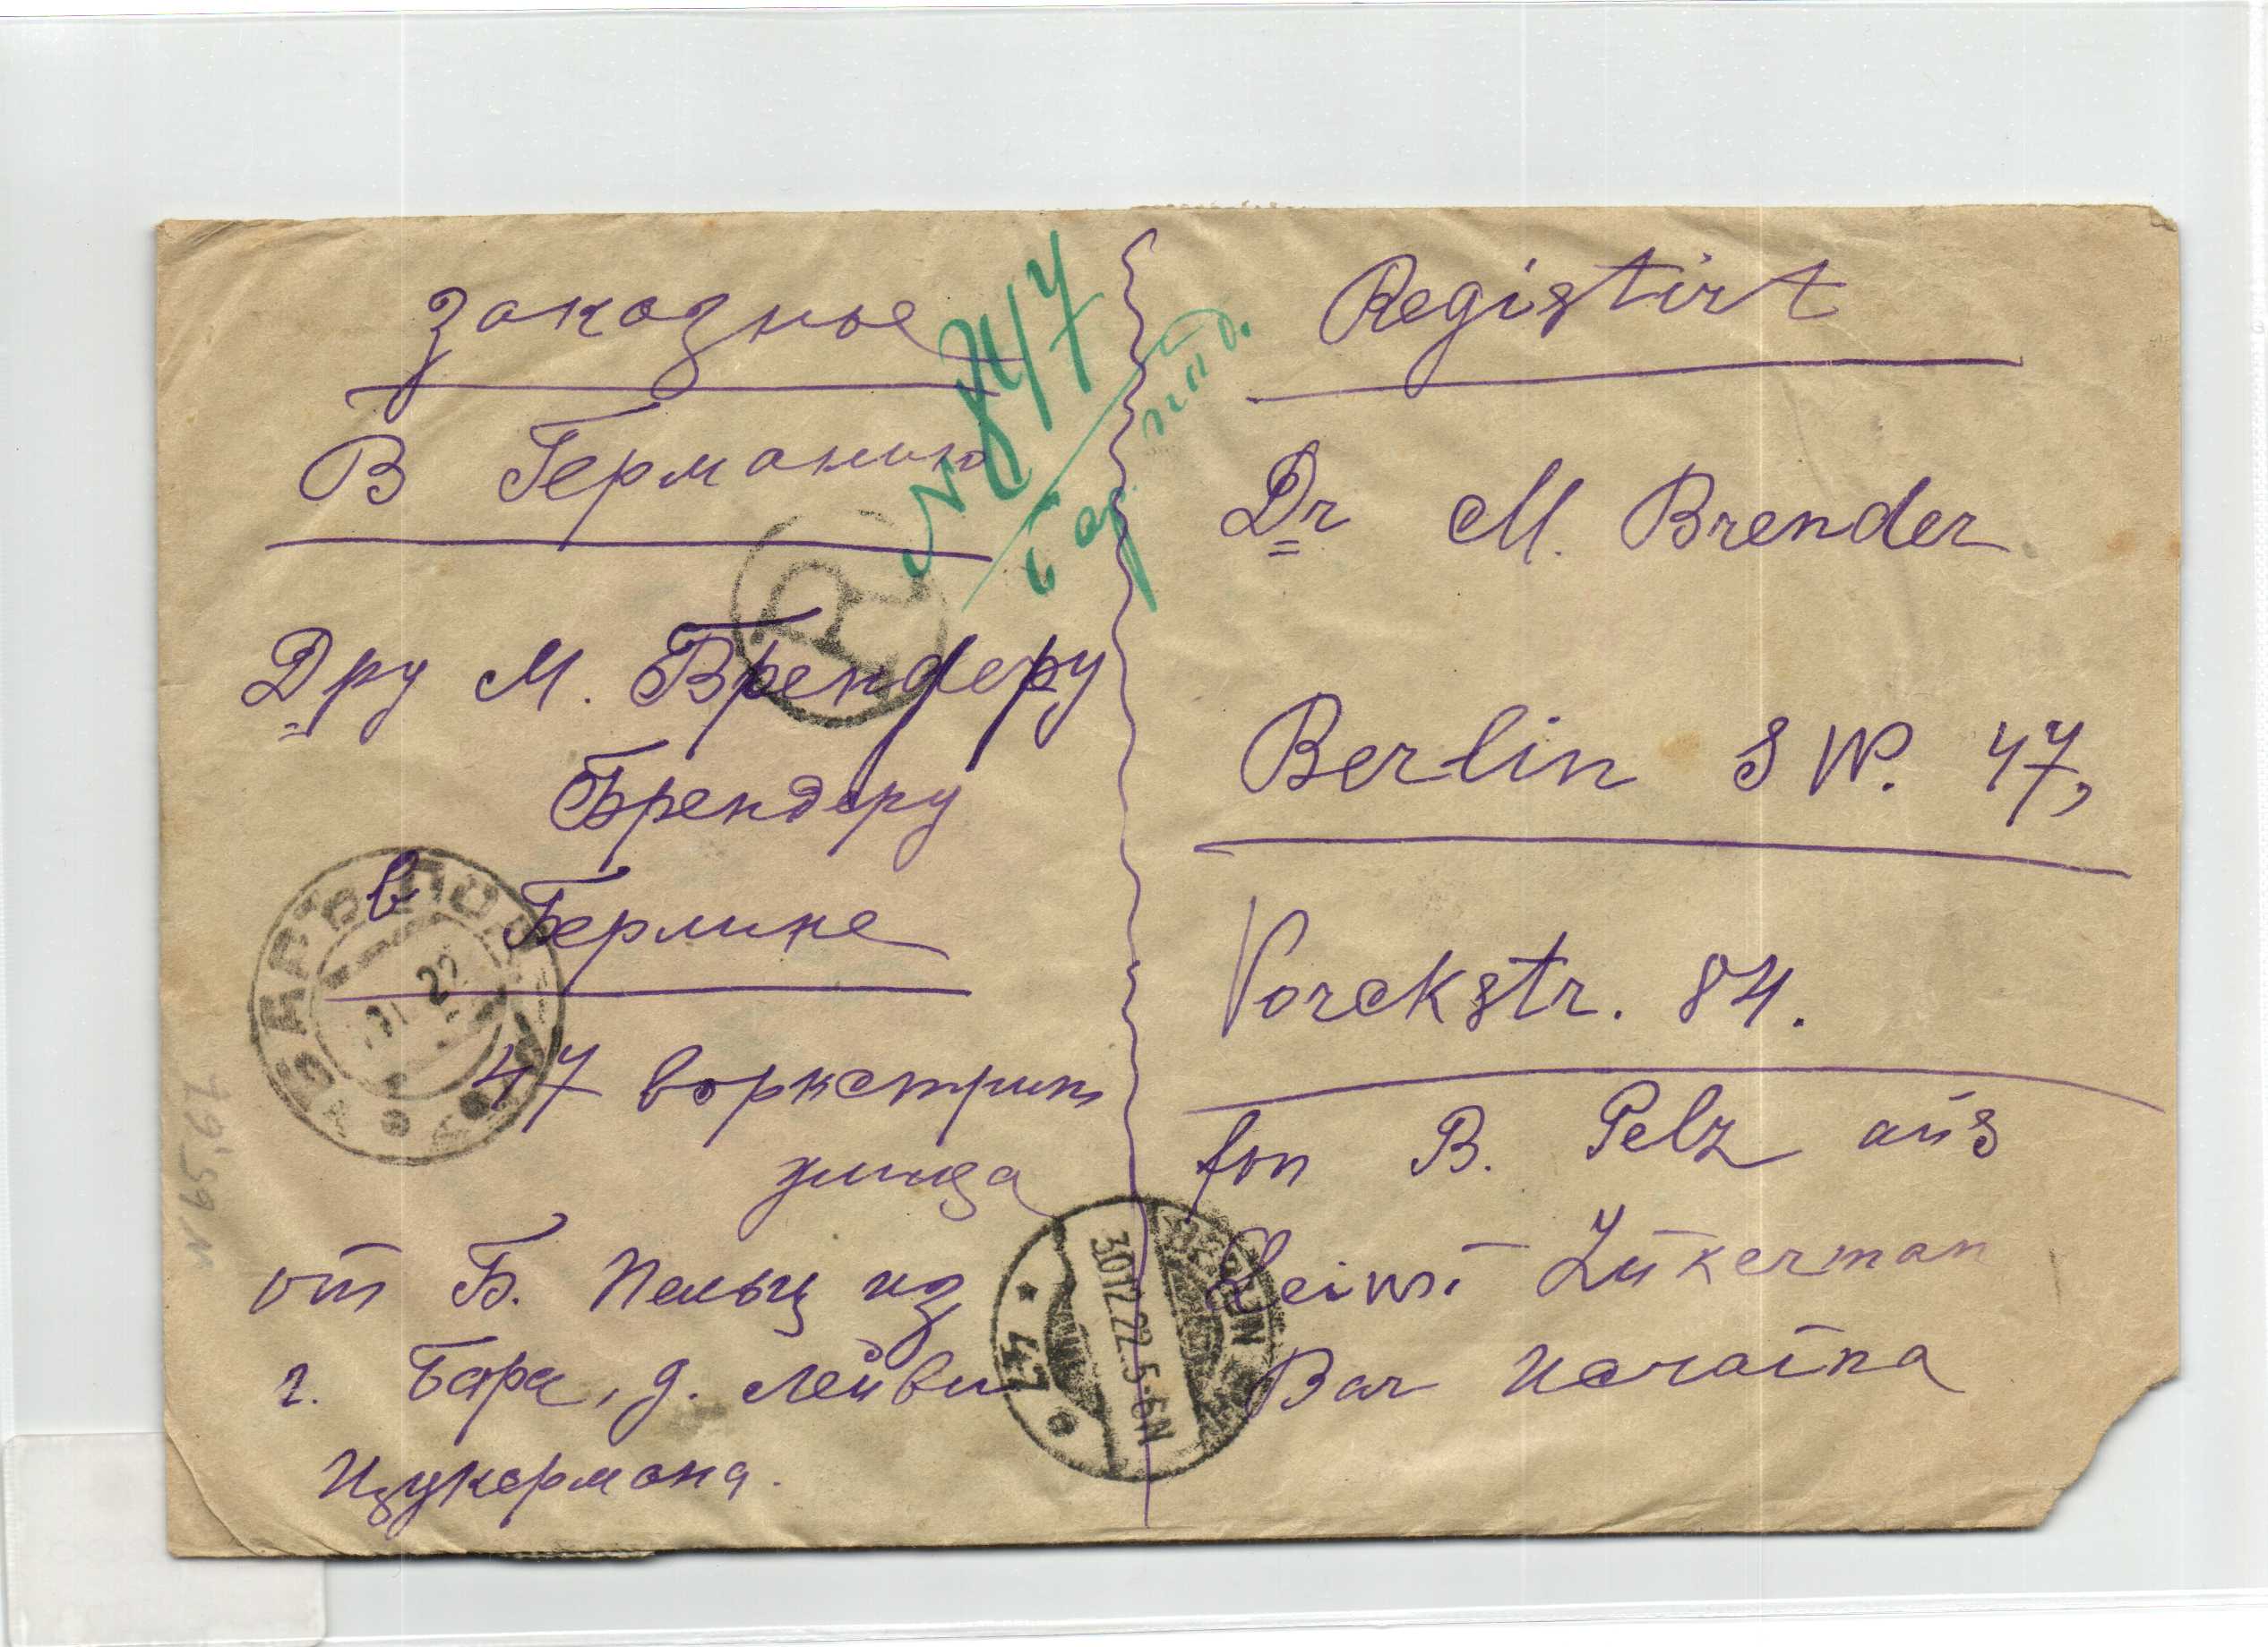 заказное
В Германию
Дру М. Брендеру
Брендеру
в Берлине
47 воркстрит
улица
от Б. Пельц из
г. Бара, д. Лейви
Цукермана.
№ 847
Бар
Registirt
Dr M. Brender
Berlin SW. 47,
Vorckstr. 84.
fon B. Pelz aus
Leiwi Zukerman
Bar Ucraina
R
БАРЪ ПОД
22
BERLIN
30.12.22.5-6N
* 47